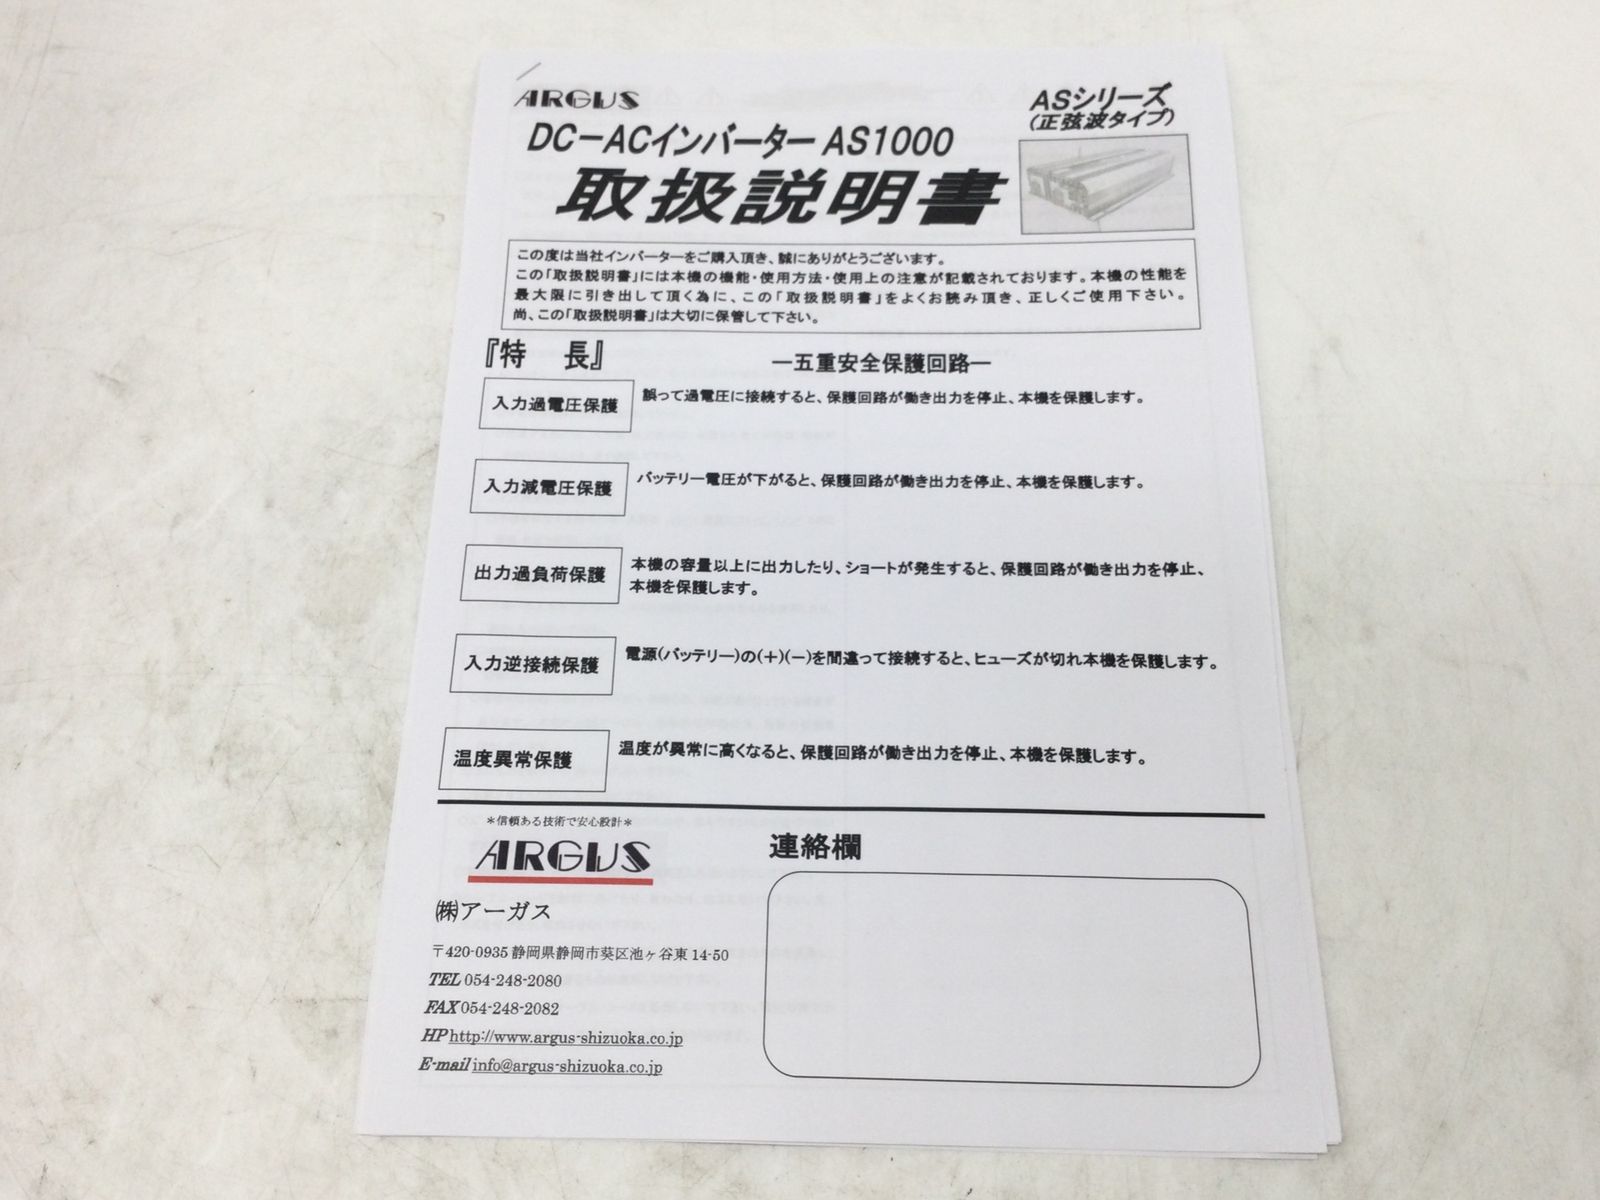 ARGUS
ASシリーズ
(正弦波タイプ)
DC-ACインバーター AS1000
取扱説明書
この度は当社インバーターをご購入頂き、誠にありがとうございます。
この「取扱説明書」には本機の機能・使用方法・使用上の注意が記載されております。本機の性能を
最大限に引き出して頂く為に、この「取扱説明書」をよくお読み頂き、正しくご使用下さい。
尚、この「取扱説明書」は大切に保管して下さい。
『特 長』
―五重安全保護回路―
入力過電圧保護
誤って過電圧に接続すると、保護回路が働き出力を停止、本機を保護します。
入力減電圧保護
バッテリー電圧が下がると、保護回路が働き出力を停止、本機を保護します。
出力過負荷保護
本機の容量以上に出力したり、ショートが発生すると、保護回路が働き出力を停止、
本機を保護します。
入力逆接続保護
電源(バッテリー)の(+)(-)を間違って接続すると、ヒューズが切れ本機を保護します。
温度異常保護
温度が異常に高くなると、保護回路が働き出力を停止、本機を保護します。
*信頼ある技術で安心設計*
ARGUS
㈱アーガス
〒420-0935 静岡県静岡市葵区池ヶ谷東 14-50
TEL 054-248-2080
FAX 054-248-2082
HP http://www.argus-shizuoka.co.jp
E-mail info@argus-shizuoka.co.jp
連絡欄